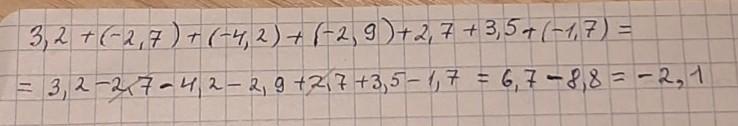 3,2 + (-2,7) + (-4,2) + (-2,9) + 2,7 + 3,5 + (-1,7) =
= 3,2 - 2,7 - 4,2 - 2,9 + 2,7 + 3,5 - 1,7 = 6,7 - 8,8 = -2,1